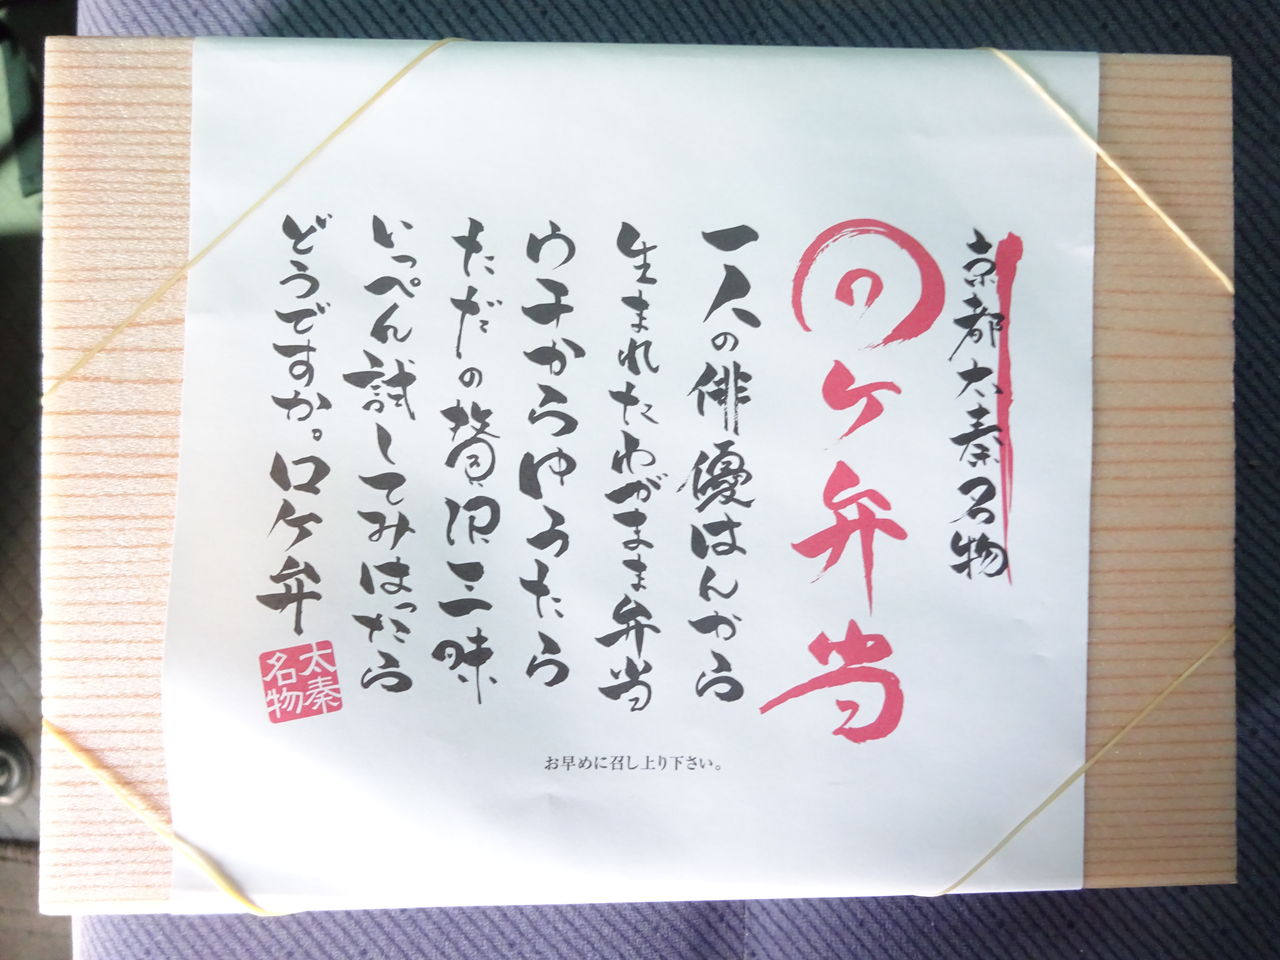 京都太秦名物
ロケ弁当
一人の俳優はんから
生まれたわがまま弁当
ウチからゆうたら
ただの贅沢三昧
いっぺん試してみはったら
どうですか。ロケ弁
太秦
名物
お早めに召し上り下さい。